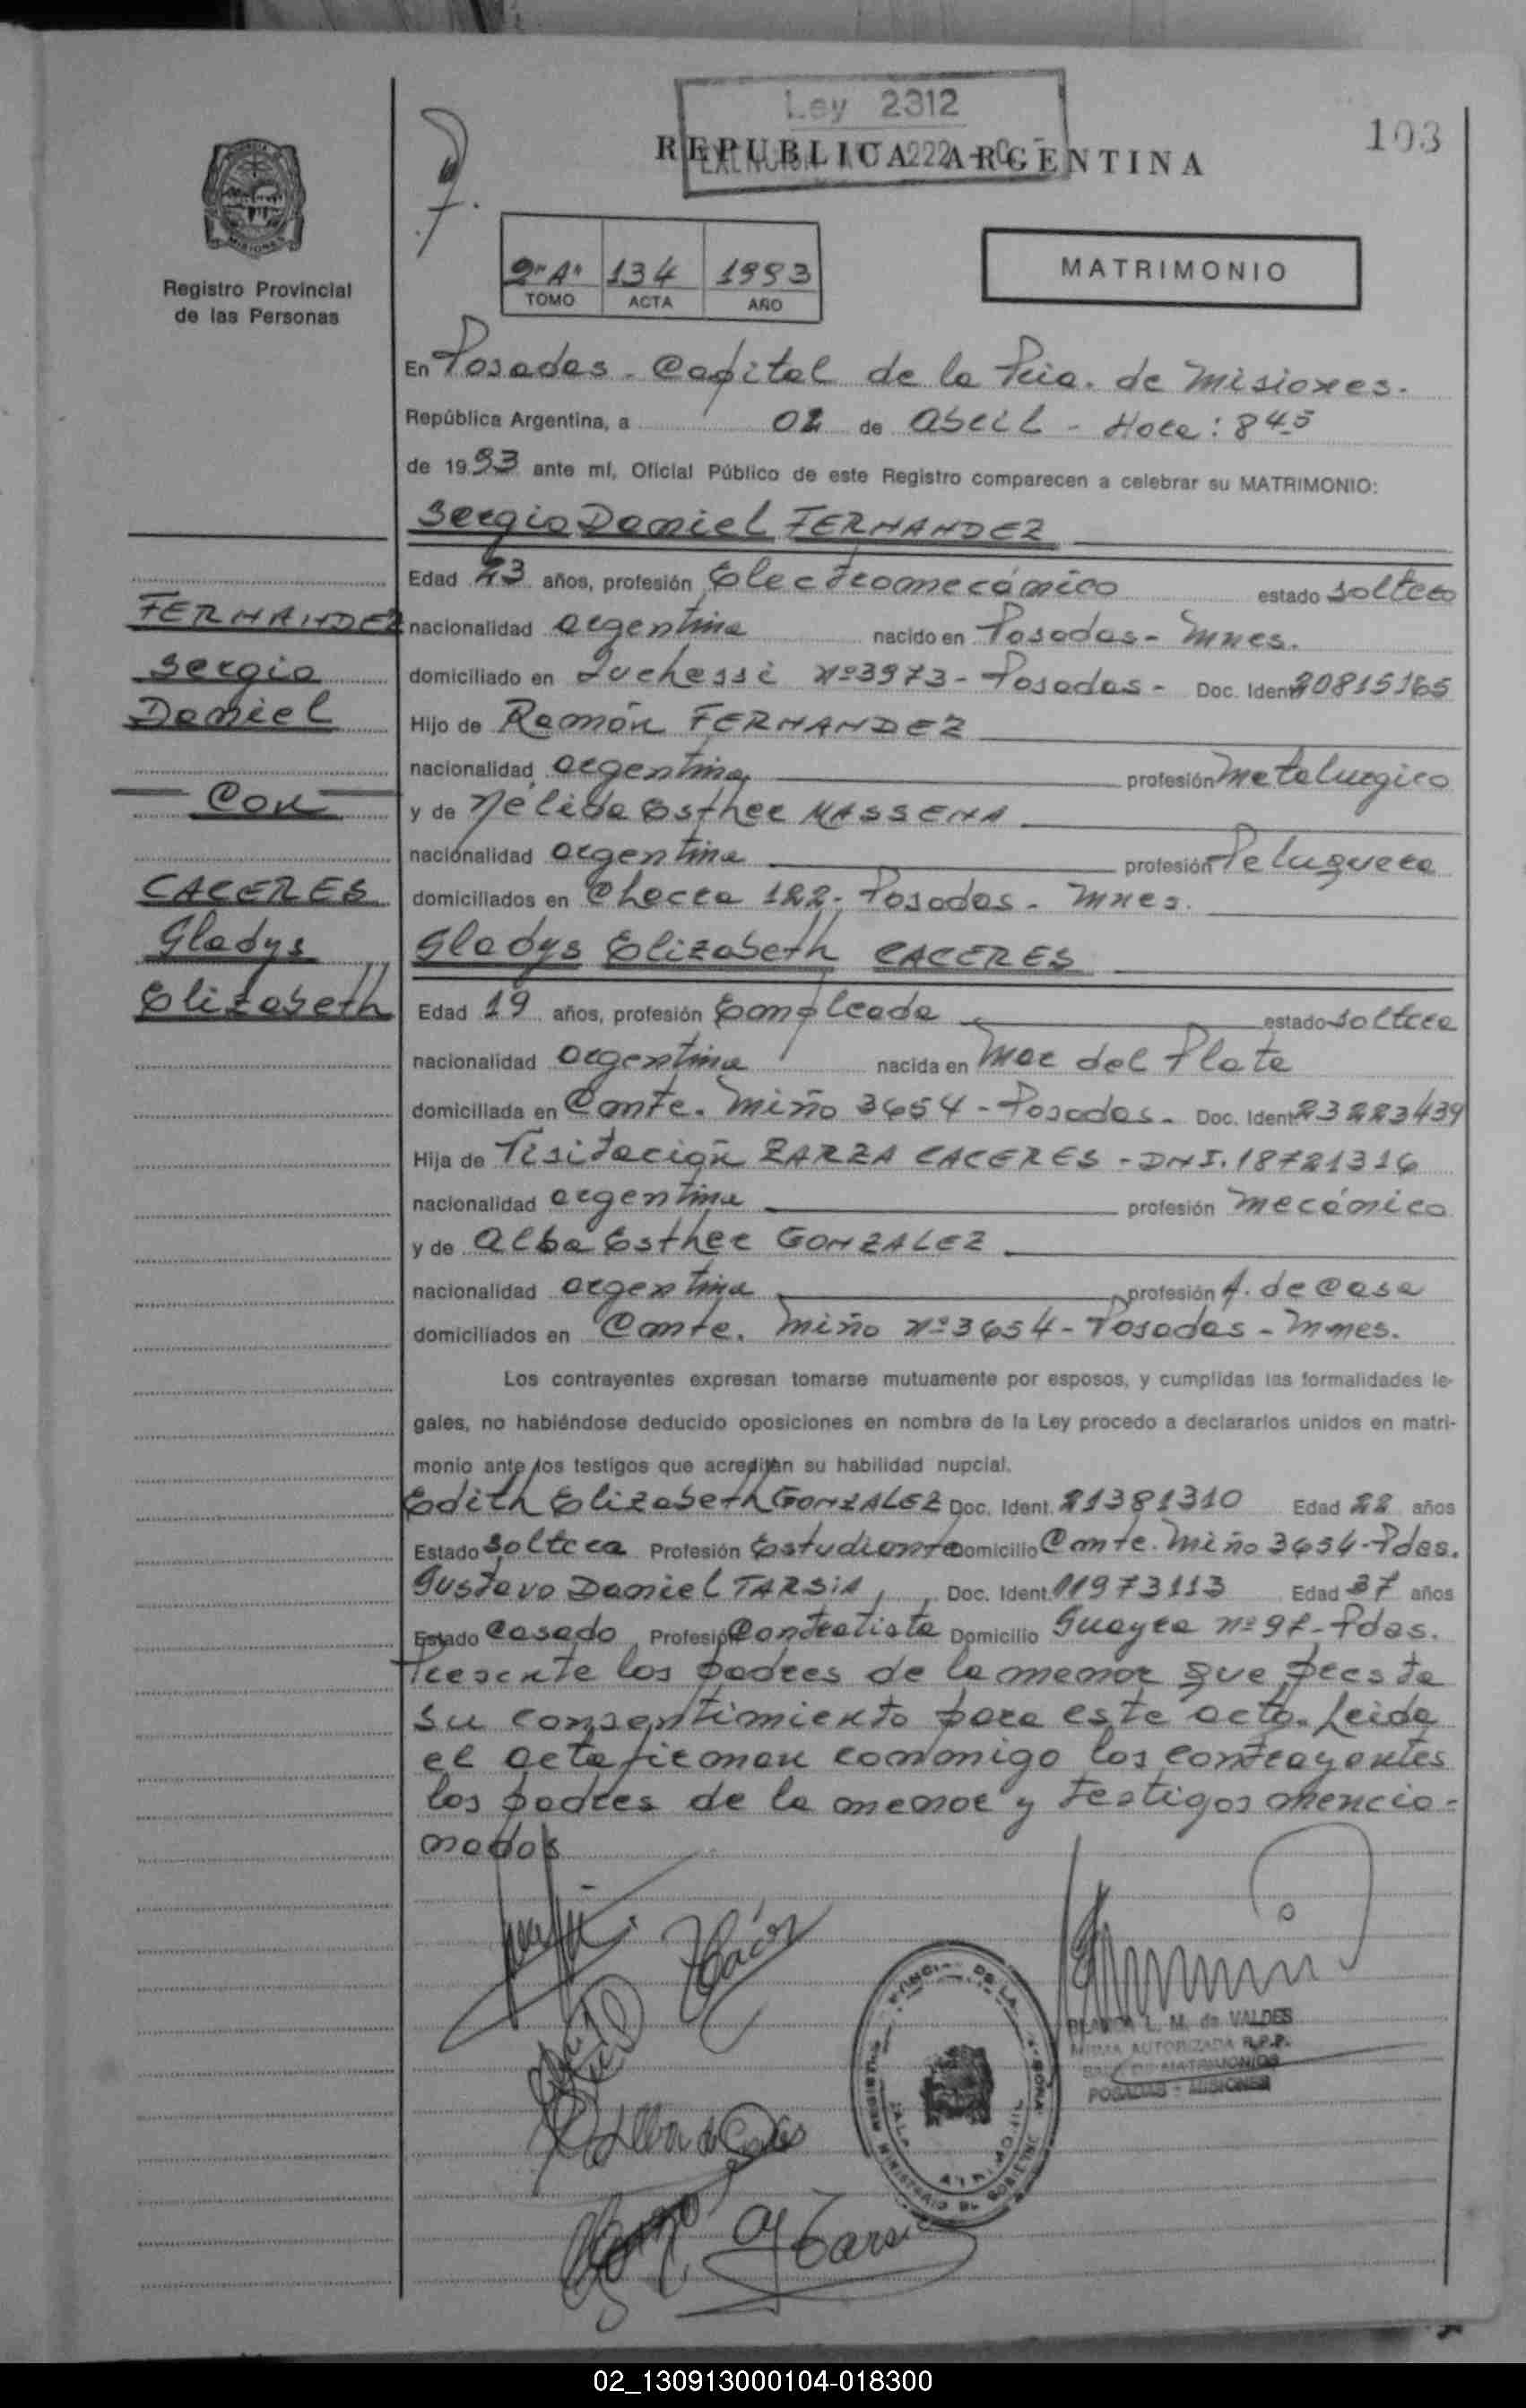 Ley 2312
103
REPUBLICA ARGENTINA
MISIONES
Registro Provincial
de las Personas
2º Aº 134 1993
TOMO ACTA AÑO
MATRIMONIO
En Posadas - Capital de la Pcia. de Misiones.
República Argentina, a 02 de abril - Hora: 8 45
de 1993 ante mí, Oficial Público de este Registro comparecen a celebrar su MATRIMONIO:
Sergio Daniel FERNANDEZ
Edad 23 años, profesión Electromecánico estado soltero
FERNANDEZ
nacionalidad argentina nacido en Posadas - Mnes.
Sergio
domiciliado en Luchessi Nº 3973 - Posadas - Doc. Ident. 20815165
Daniel
Hijo de Ramón FERNANDEZ
nacionalidad argentina profesión Metalurgico
Con
y de Nélida Esther MASSENA
nacionalidad argentina profesión Peluquera
CACERES
domiciliados en Checra 122 - Posadas - Mnes.
Gladys
Gladys Elizabeth CACERES
Elizabeth
Edad 19 años, profesión Empleada estado soltera
nacionalidad argentina nacida en Mar del Plata
domiciliada en Comte. Miño 3654 - Posadas - Doc. Ident. 23223439
Hija de Visitación ZARZA CACERES - DNI. 18721316
nacionalidad argentina profesión mecánico
y de Alba Esther GONZALEZ
nacionalidad argentina profesión A. de Casa
domiciliados en Comte. Miño Nº 3654 - Posadas - Mnes.
Los contrayentes expresan tomarse mutuamente por esposos, y cumplidas las formalidades le-
gales, no habiéndose deducido oposiciones en nombre de la Ley procedo a declararlos unidos en matri-
monio ante los testigos que acreditan su habilidad nupcial.
Edith Elizabeth GONZALEZ Doc. Ident. 21381310 Edad 22 años
Estado soltera Profesión Estudiante Domicilio Comte. Miño 3654 - Pdas.
Gustavo Daniel TARSIA Doc. Ident. 11973113 Edad 37 años
Estado Casado Profesión Contratista Domicilio Guayra Nº 97 - Pdas.
Presente los padres de la menor que presta
su consentimiento para este acto. Leida
el acta firman conmigo los contrayentes
los padres de la menor y testigos mencio-
nados
BLANCA L. M. de VALDES
FIRMA AUTORIZADA R.P.P.
SALA DE MATRIMONIOS
POSADAS - MISIONES
02_130913000104-018300